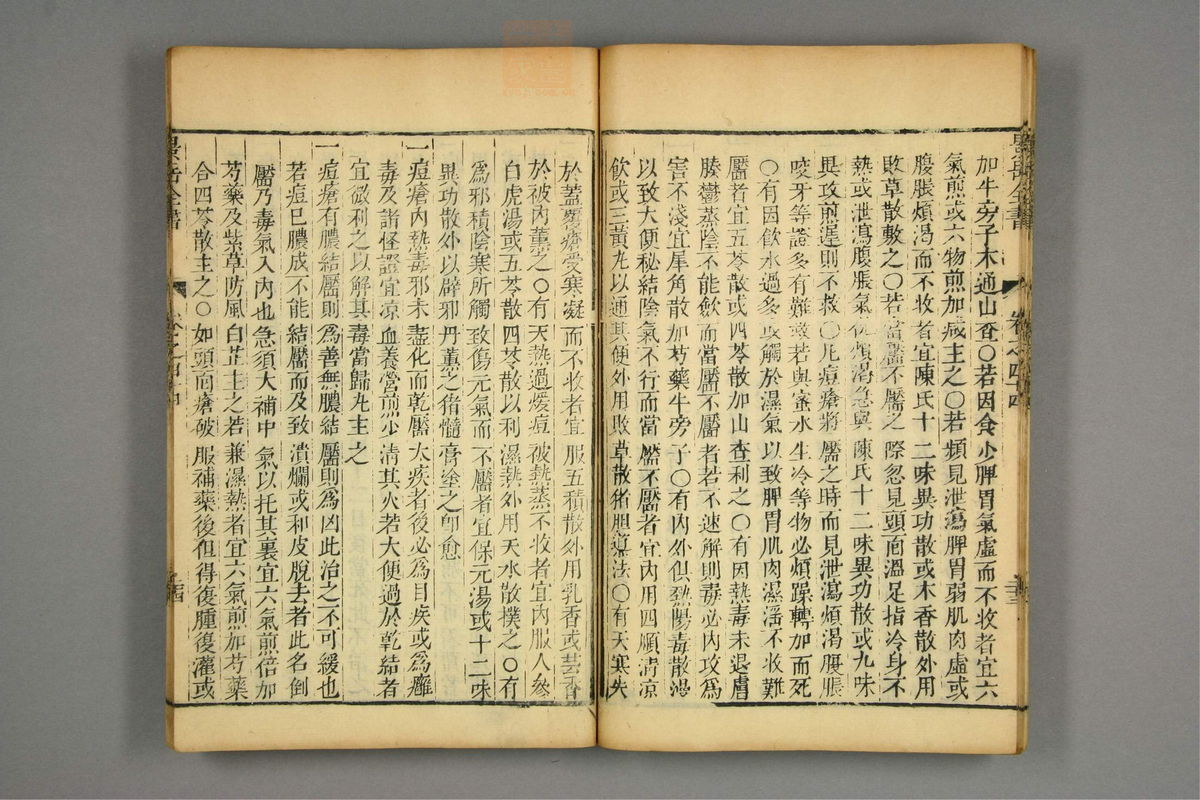 加牛旁子木通山查〇若因食少脾胃氣虛而不收者宜六
氣煎或六物煎加減主之〇若頻見泄瀉脾胃弱肌肉虛或
腹脹煩渴而不收者宜陳氏十二味異功散或木香散外用
敗草散敷之〇若當靨不靨之際忽見頭面溫足指冷身不
熱或泄瀉腹脹氣促煩渴急與陳氏十二味異功散或九味
異攻煎遲則不救〇凡痘瘡將靨之時而見泄瀉煩渴腹脹
咬牙等證多有難救若與蜜水生冷等物必煩躁轉加而死
〇有因飲水過多或觸於濕氣以致脾胃肌肉濕淫不收難
靨者宜五苓散或四苓散加山查利之〇有因熱毒未退膚
腠鬱蒸陰不能斂而當靨不靨者若不速解則毒必內攻爲
害不淺宜犀角散加芍藥牛旁子〇有內外俱熱陽毒散漫
以致大便秘結陰氣不行而當靨不靨者宜內用四順清凉
飲或三黃丸以通其便外用敗草散猪胆導法〇有天寒失
於蓋覆瘡受寒凝而不收者宜服五積散外用乳香或芸香
於被內薰之〇有天熱過煖痘被熱蒸不收者宜內服人參
白虎湯或五苓散四苓散以利濕熱外用天水散撲之〇有
爲邪積陰寒所觸致傷元氣而不靨者宜保元湯或十二味
異功散外以辟邪丹薰之猪髓膏塗之卽愈
一痘瘡內熱毒邪未盡化而乾靨太疾者後必爲目疾或爲癰
毒及諸怪證宜凉血養營煎少清其火若大便過於乾結者
宜微利之以解其毒當歸丸主之
一痘瘡有膿結靨則爲善無膿結靨則爲凶此治之不可緩也
若痘已膿成不能結靨而及致潰爛或和皮脫去者此名倒
靨乃毒氣入內也急須大補中氣以托其裏宜六氣煎倍加
芍藥及紫草防風白芷主之若兼濕熱者宜六氣煎加芍藥
合四苓散主之〇如頭面瘡破服補藥後但得復腫復灌或
景岳全書
卷之四十四